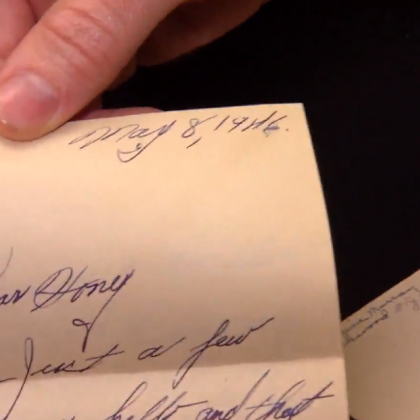 May 8, 1946.
Dear Hony
Just a few
hello and that